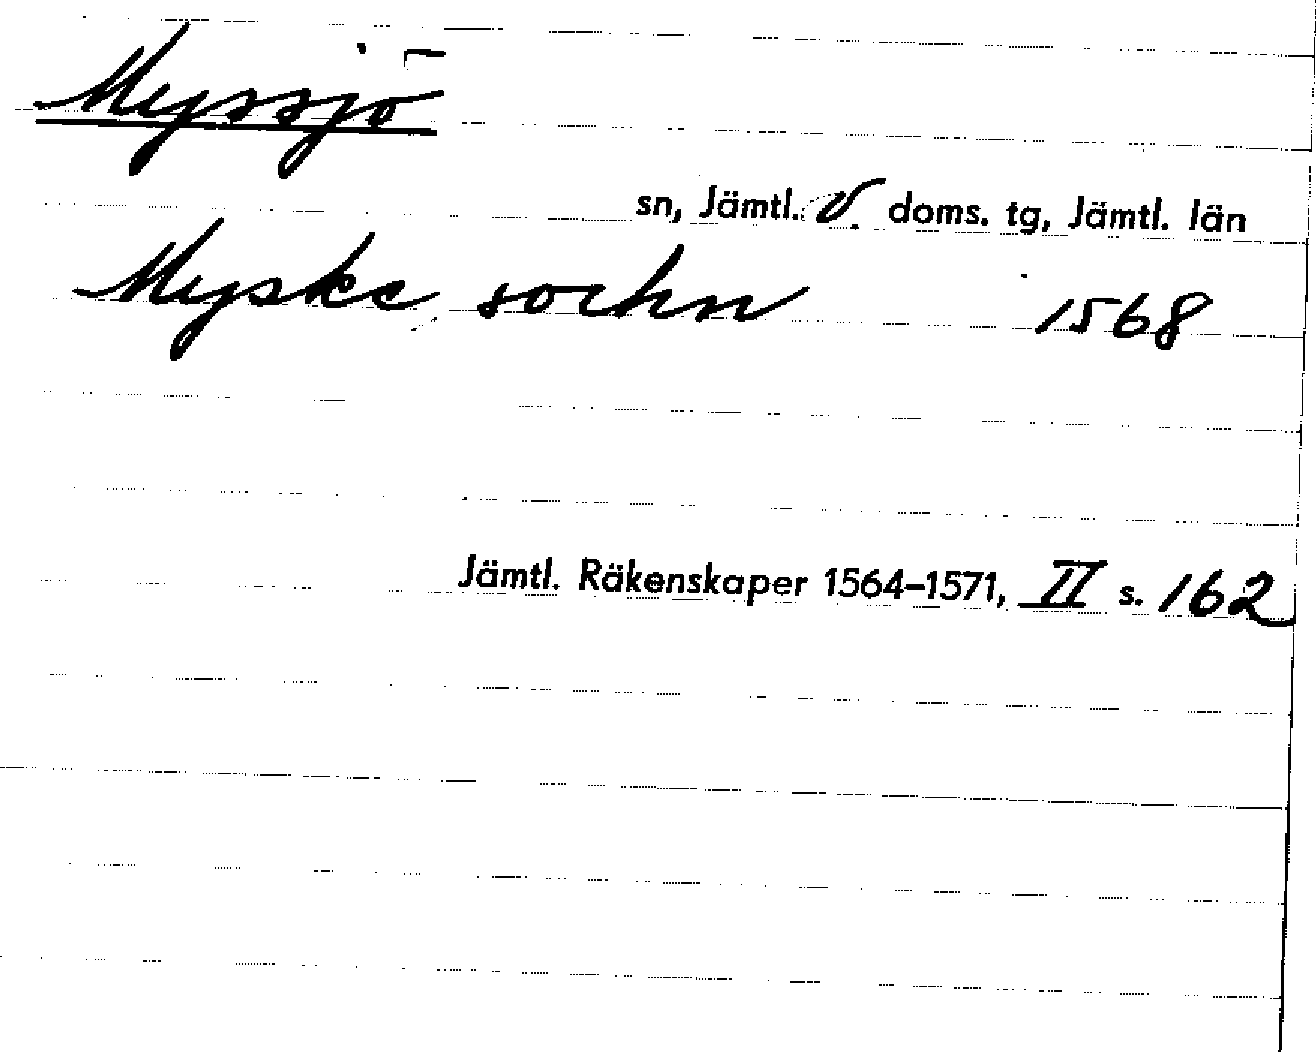 Myssjö
sn, Jämtl. v. doms. tg, Jämtl. län
Myske sochn 1568
Jämtl. Räkenskaper 1564–1571, II s. 162